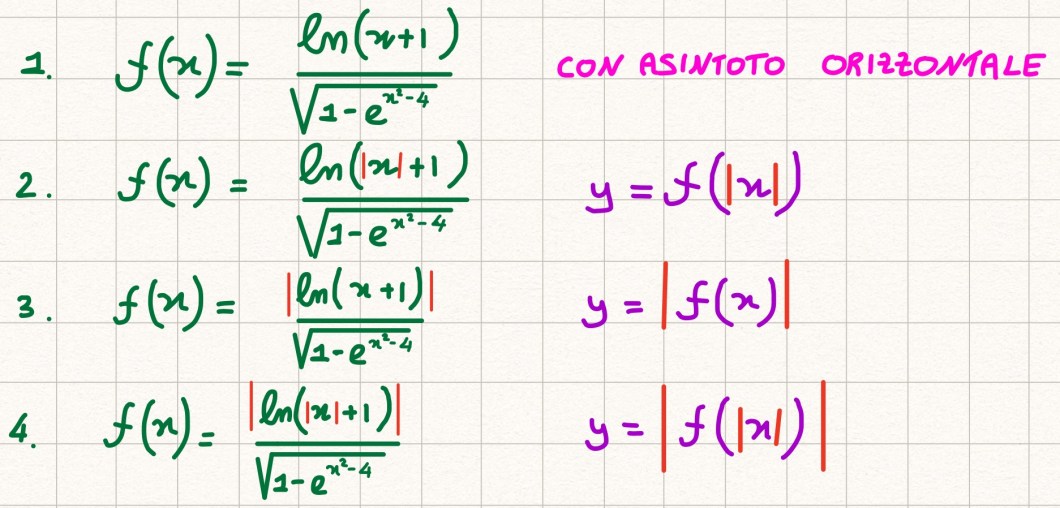 1. f(x) = ln(x+1) / √(1-e^(x²-4)) CON ASINTOTO ORIZZONTALE
2. f(x) = ln(|x|+1) / √(1-e^(x²-4)) y = f(|x|)
3. f(x) = |ln(x+1)| / √(1-e^(x²-4)) y = |f(x)|
4. f(x) = |ln(|x|+1)| / √(1-e^(x²-4)) y = |f(|x|)|